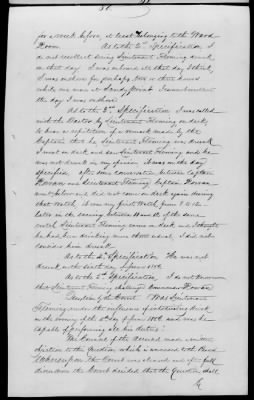 for a week before, at least belonging to the Ward
Room.
As to the 2d Specification I
do not recollect seeing Lieutenant Fleming drunk
on that day. I was on board all that day I think
I was on shore for perhaps two or three times
while we were at Sandy Point I can't recollect
the day I was on shore.
As to the 3d Specification I was called
with the Doctor by Lieutenant Fleming on deck,
to hear a repetition of a remark made by the
Captain that he Lieutenant Fleming was drunk
I went on deck and saw Lieutenant Fleming and he
was not drunk in my opinion it was on the day
specified, after some conversation between Captain
and Lieutenant Fleming Captain
went below and did not come on deck again during
that watch, it was my first watch from 8 to 12
later in the evening between 10 and 12 of the same
watch Lieutenant Fleming came on deck, and I thought
he had been drinking more than usual, I did not
consider him drunk.
As to the 4th Specification He was not
drunk on the sixth day of June 1868
As to the 5th Specification I do not know
that Lieutenant Fleming challenged Commander
Question by the Court Was Lieutenant
Fleming under the influence of intoxicating drink
on the evening of the day of June 1868 and was he
capable of performing all his duties?
The Counsel of the Accused made a written
objection to the Question which is annexed to the Record
Whereupon the Court was cleared and after full
discussion the Court decided that the Question shall